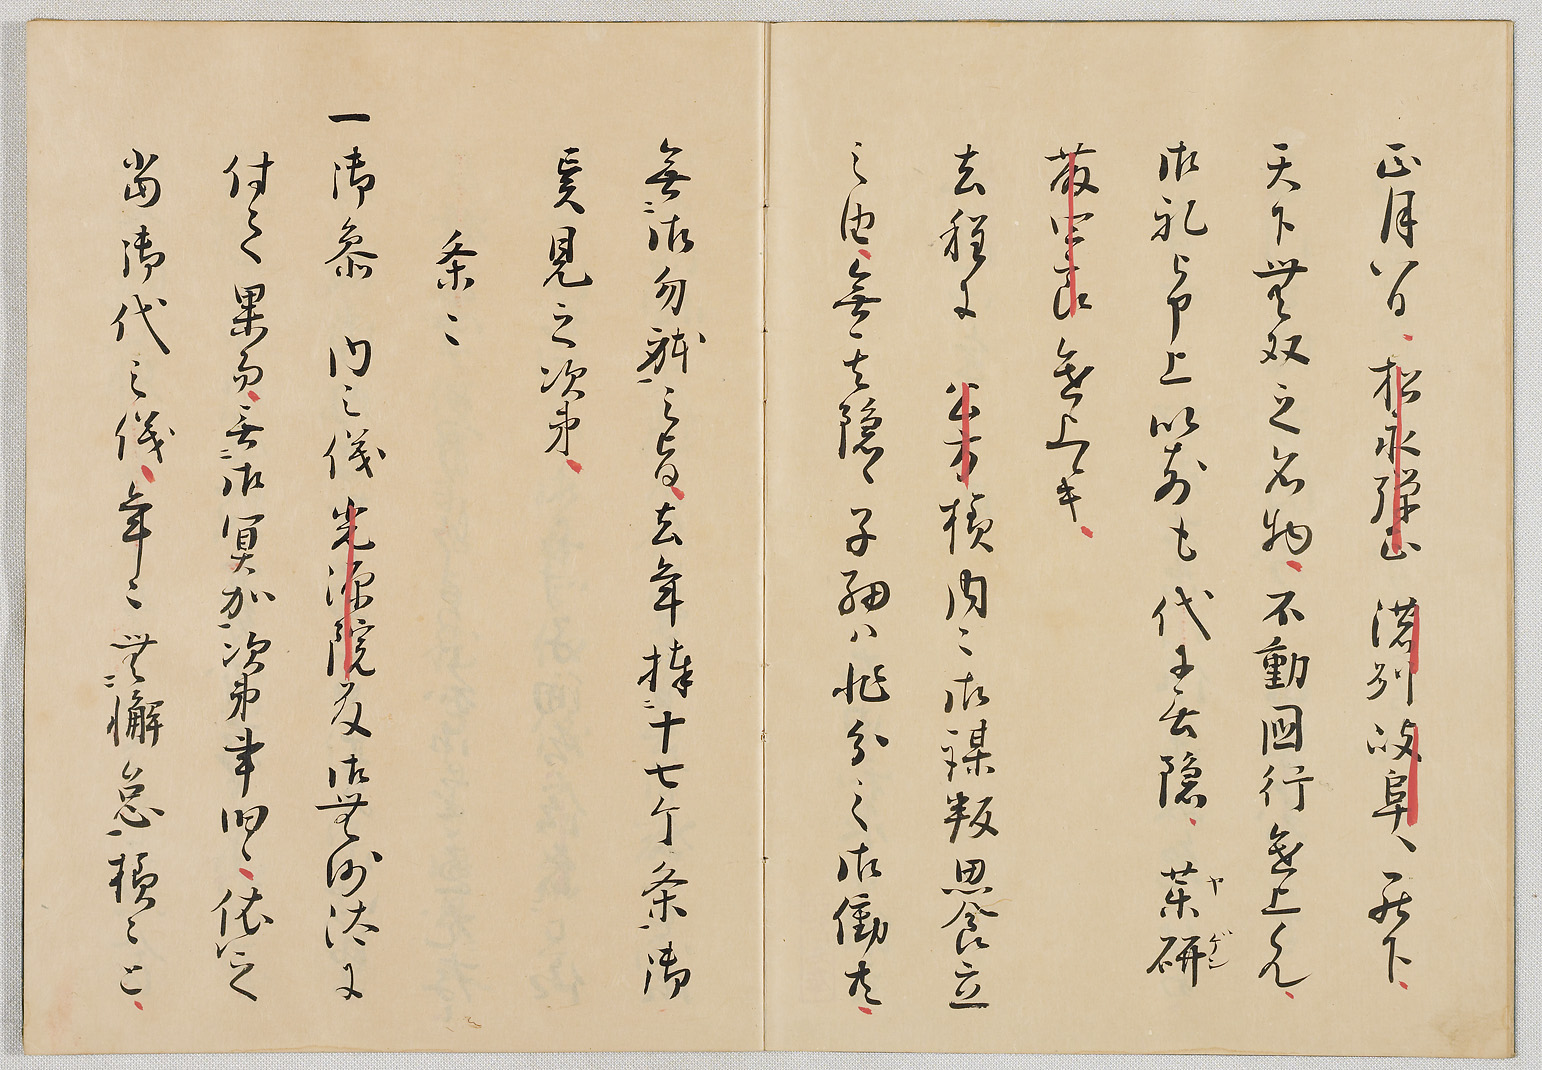 正月八日、松永弾正濃州岐阜へ罷下、
天下無双之名物、不動国行進上候、
御礼被申上以前も代に無隠、薬研
ヤゲン
藤四郎進上也、
去程に公方様内々御謀叛思食立
之由、無其隠子細ハ非分之御働共、
無御勿躰之旨、去年捧十七ケ条御
異見之次第、
条々
一御参内之儀光源院殿御無沙汰に
付て果而、無御冥加次第事旧、依之
当御代之儀、年々無懈怠様ニと、